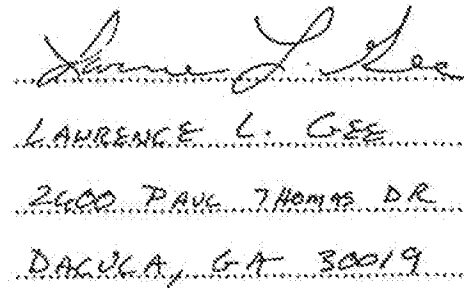 Lawrence L. Gee
LAWRENCE L. GEE
2600 PAUL THOMAS DR
DACULA, GA 30019